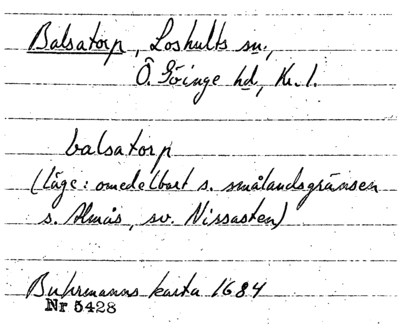 Balsatorp, Loshults sn.,
Ö. Göinge hd, Kr. l.
balsatorp
(Läge: omedelbart s. smålandsgränsen
s. Almås, sv. Nissasten)
Buhrmanns karta 1684
Nr 5428